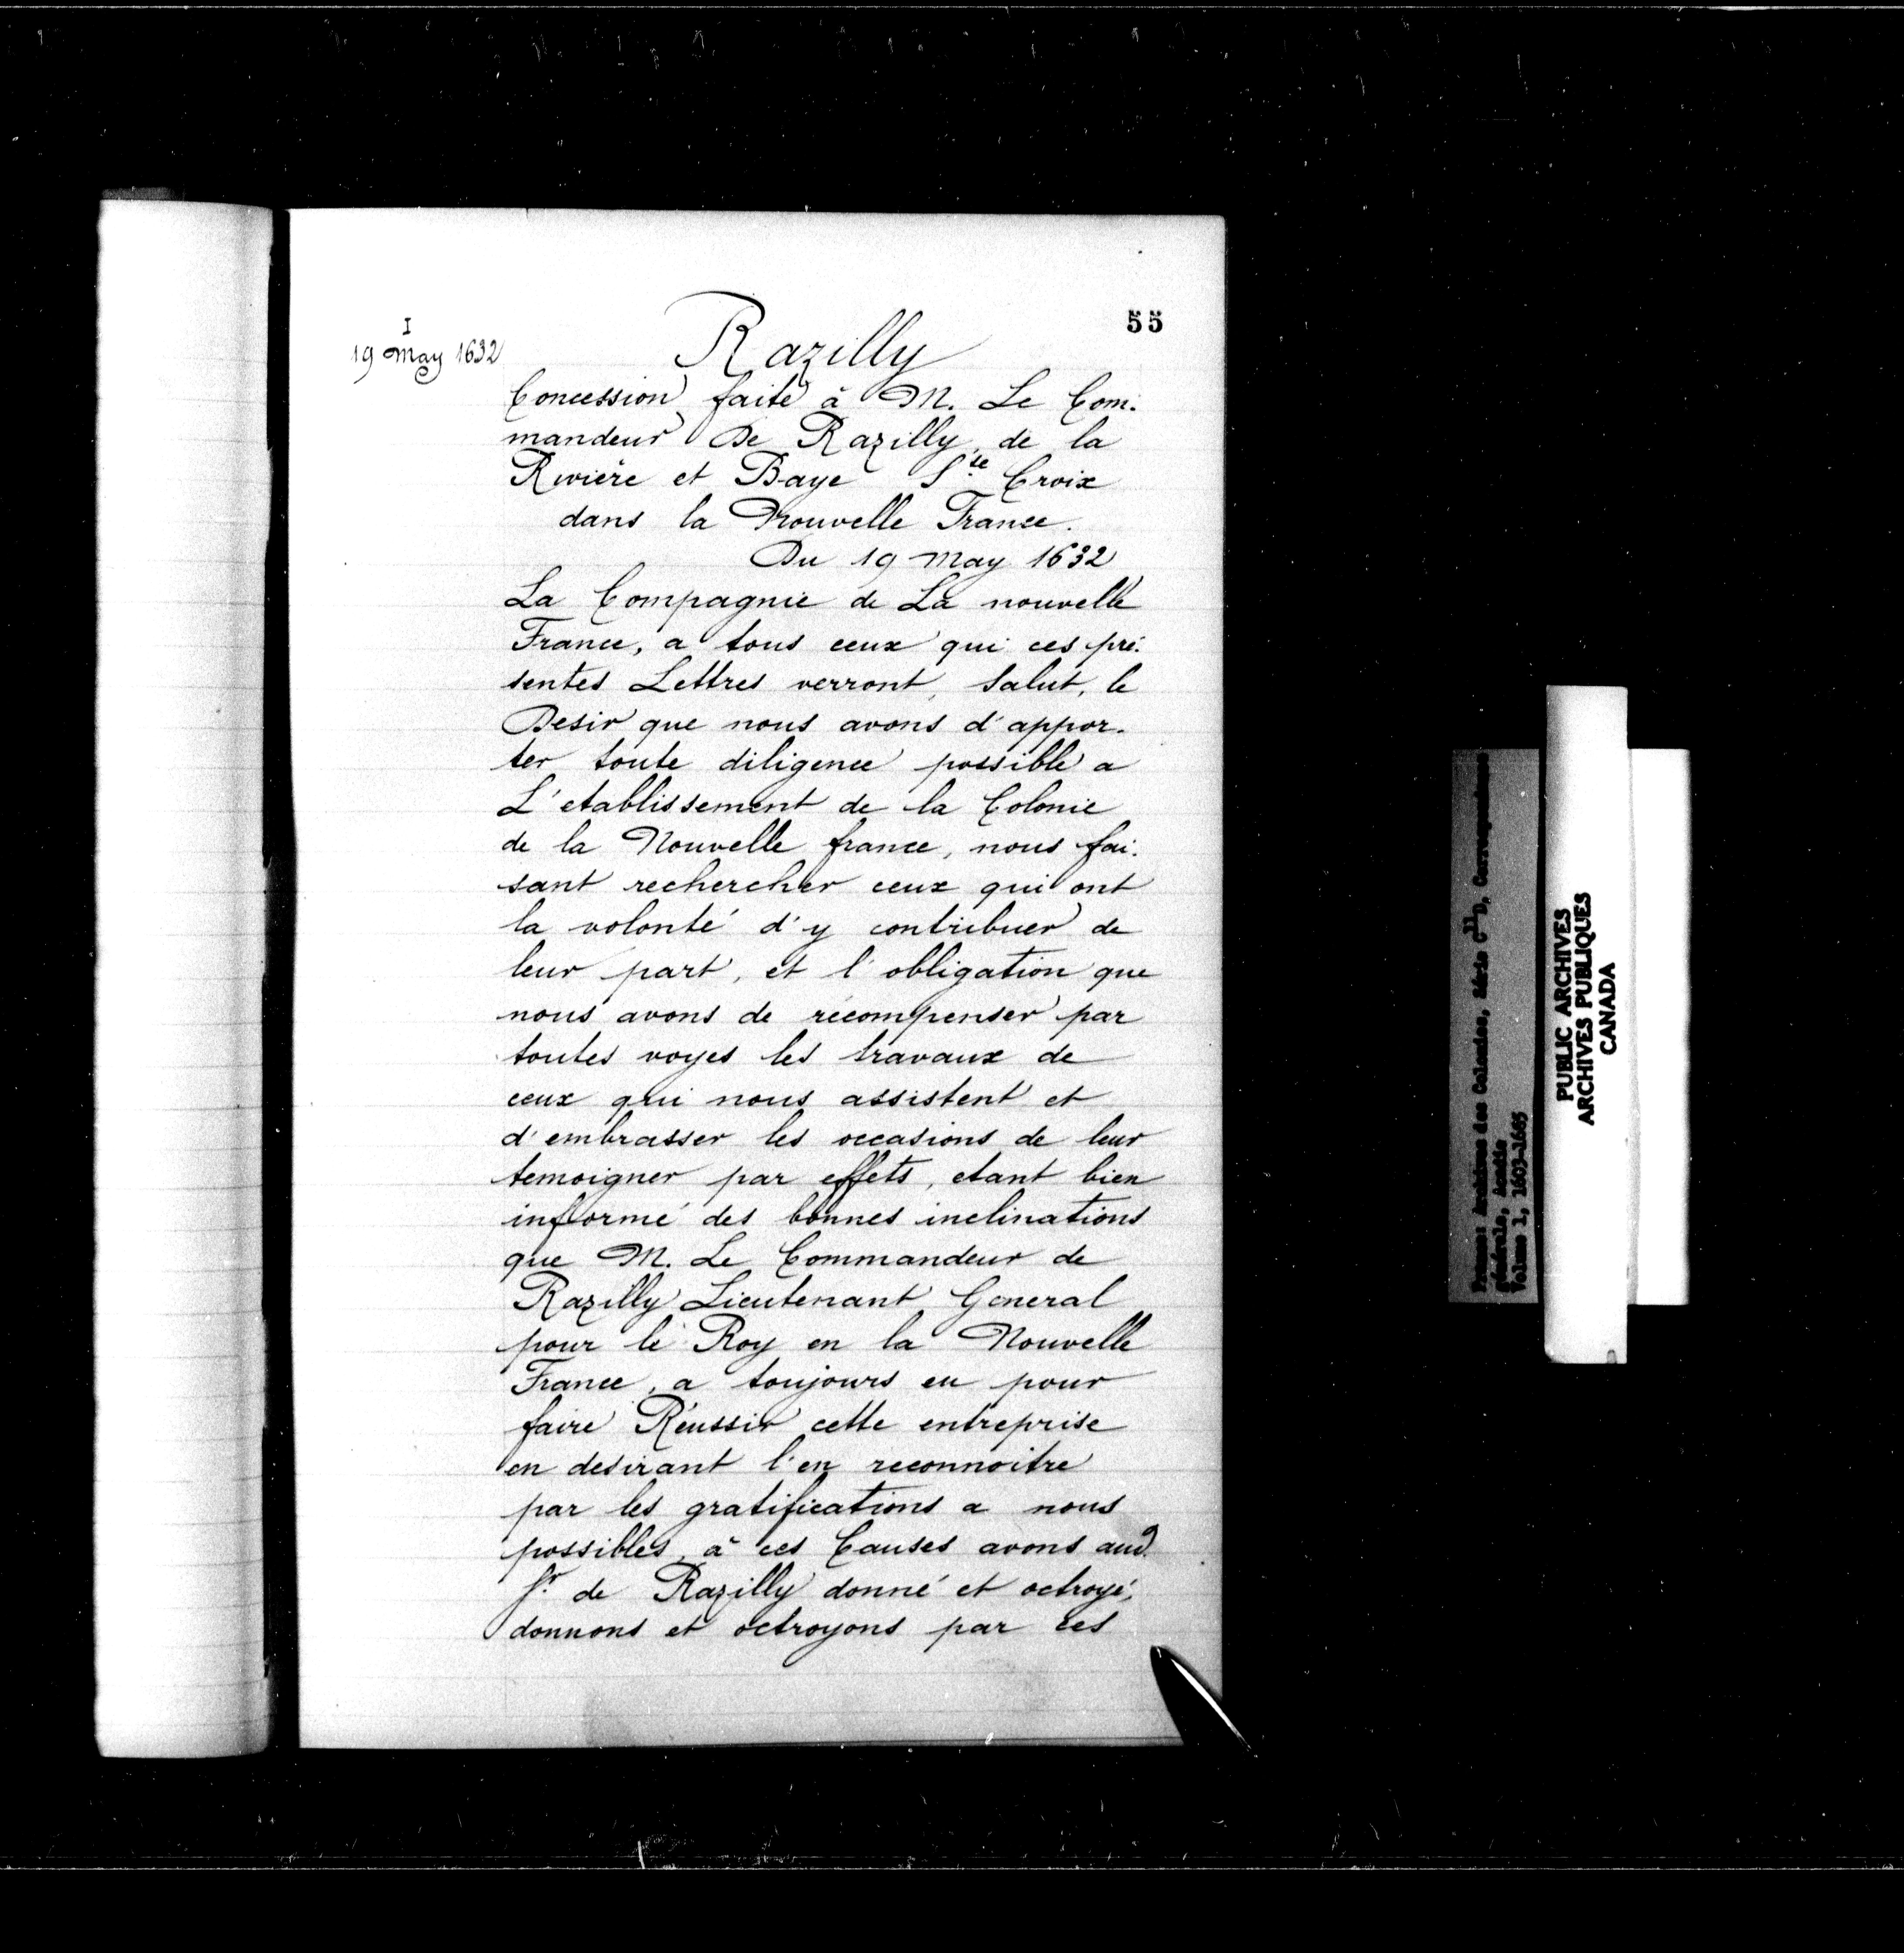 55
I
19 May 1632
Razilly
Concession faite à M. Le Com-
mandeur De Razilly, de la
Rivière et Baye Ste Croix
dans la Nouvelle France.
Du 19 May 1632
La Compagnie de La nouvelle
France, a tous ceux qui ces pré-
sentes Lettres verront, Salut, le
Desir que nous avons d'appor-
ter toute diligence possible a
L'etablissement de la Colonie
de la Nouvelle france, nous fai-
sant rechercher ceux qui ont
la volonté d'y contribuer de
leur part, et l'obligation que
nous avons de récompenser par
toutes voyes les travaux de
ceux qui nous assistent et
d'embrasser les occasions de leur
temoigner par effets, etant bien
informé des bonnes inclinations
que M. Le Commandeur de
Razilly Lieutenant General
pour le Roy en la Nouvelle
France, a toujours eu pour
faire Réussir cette entreprise
en desirant l'en reconnoitre
par les gratifications a nous
possibles, à ces Causes avons aud.
Sr. de Razilly donné et octroyé,
donnons et octroyons par ces
France: Archives des Colonies, Série C11D, Correspondance
générale, Acadie
Volume 1, 1603-1685
PUBLIC ARCHIVES
ARCHIVES PUBLIQUES
CANADA